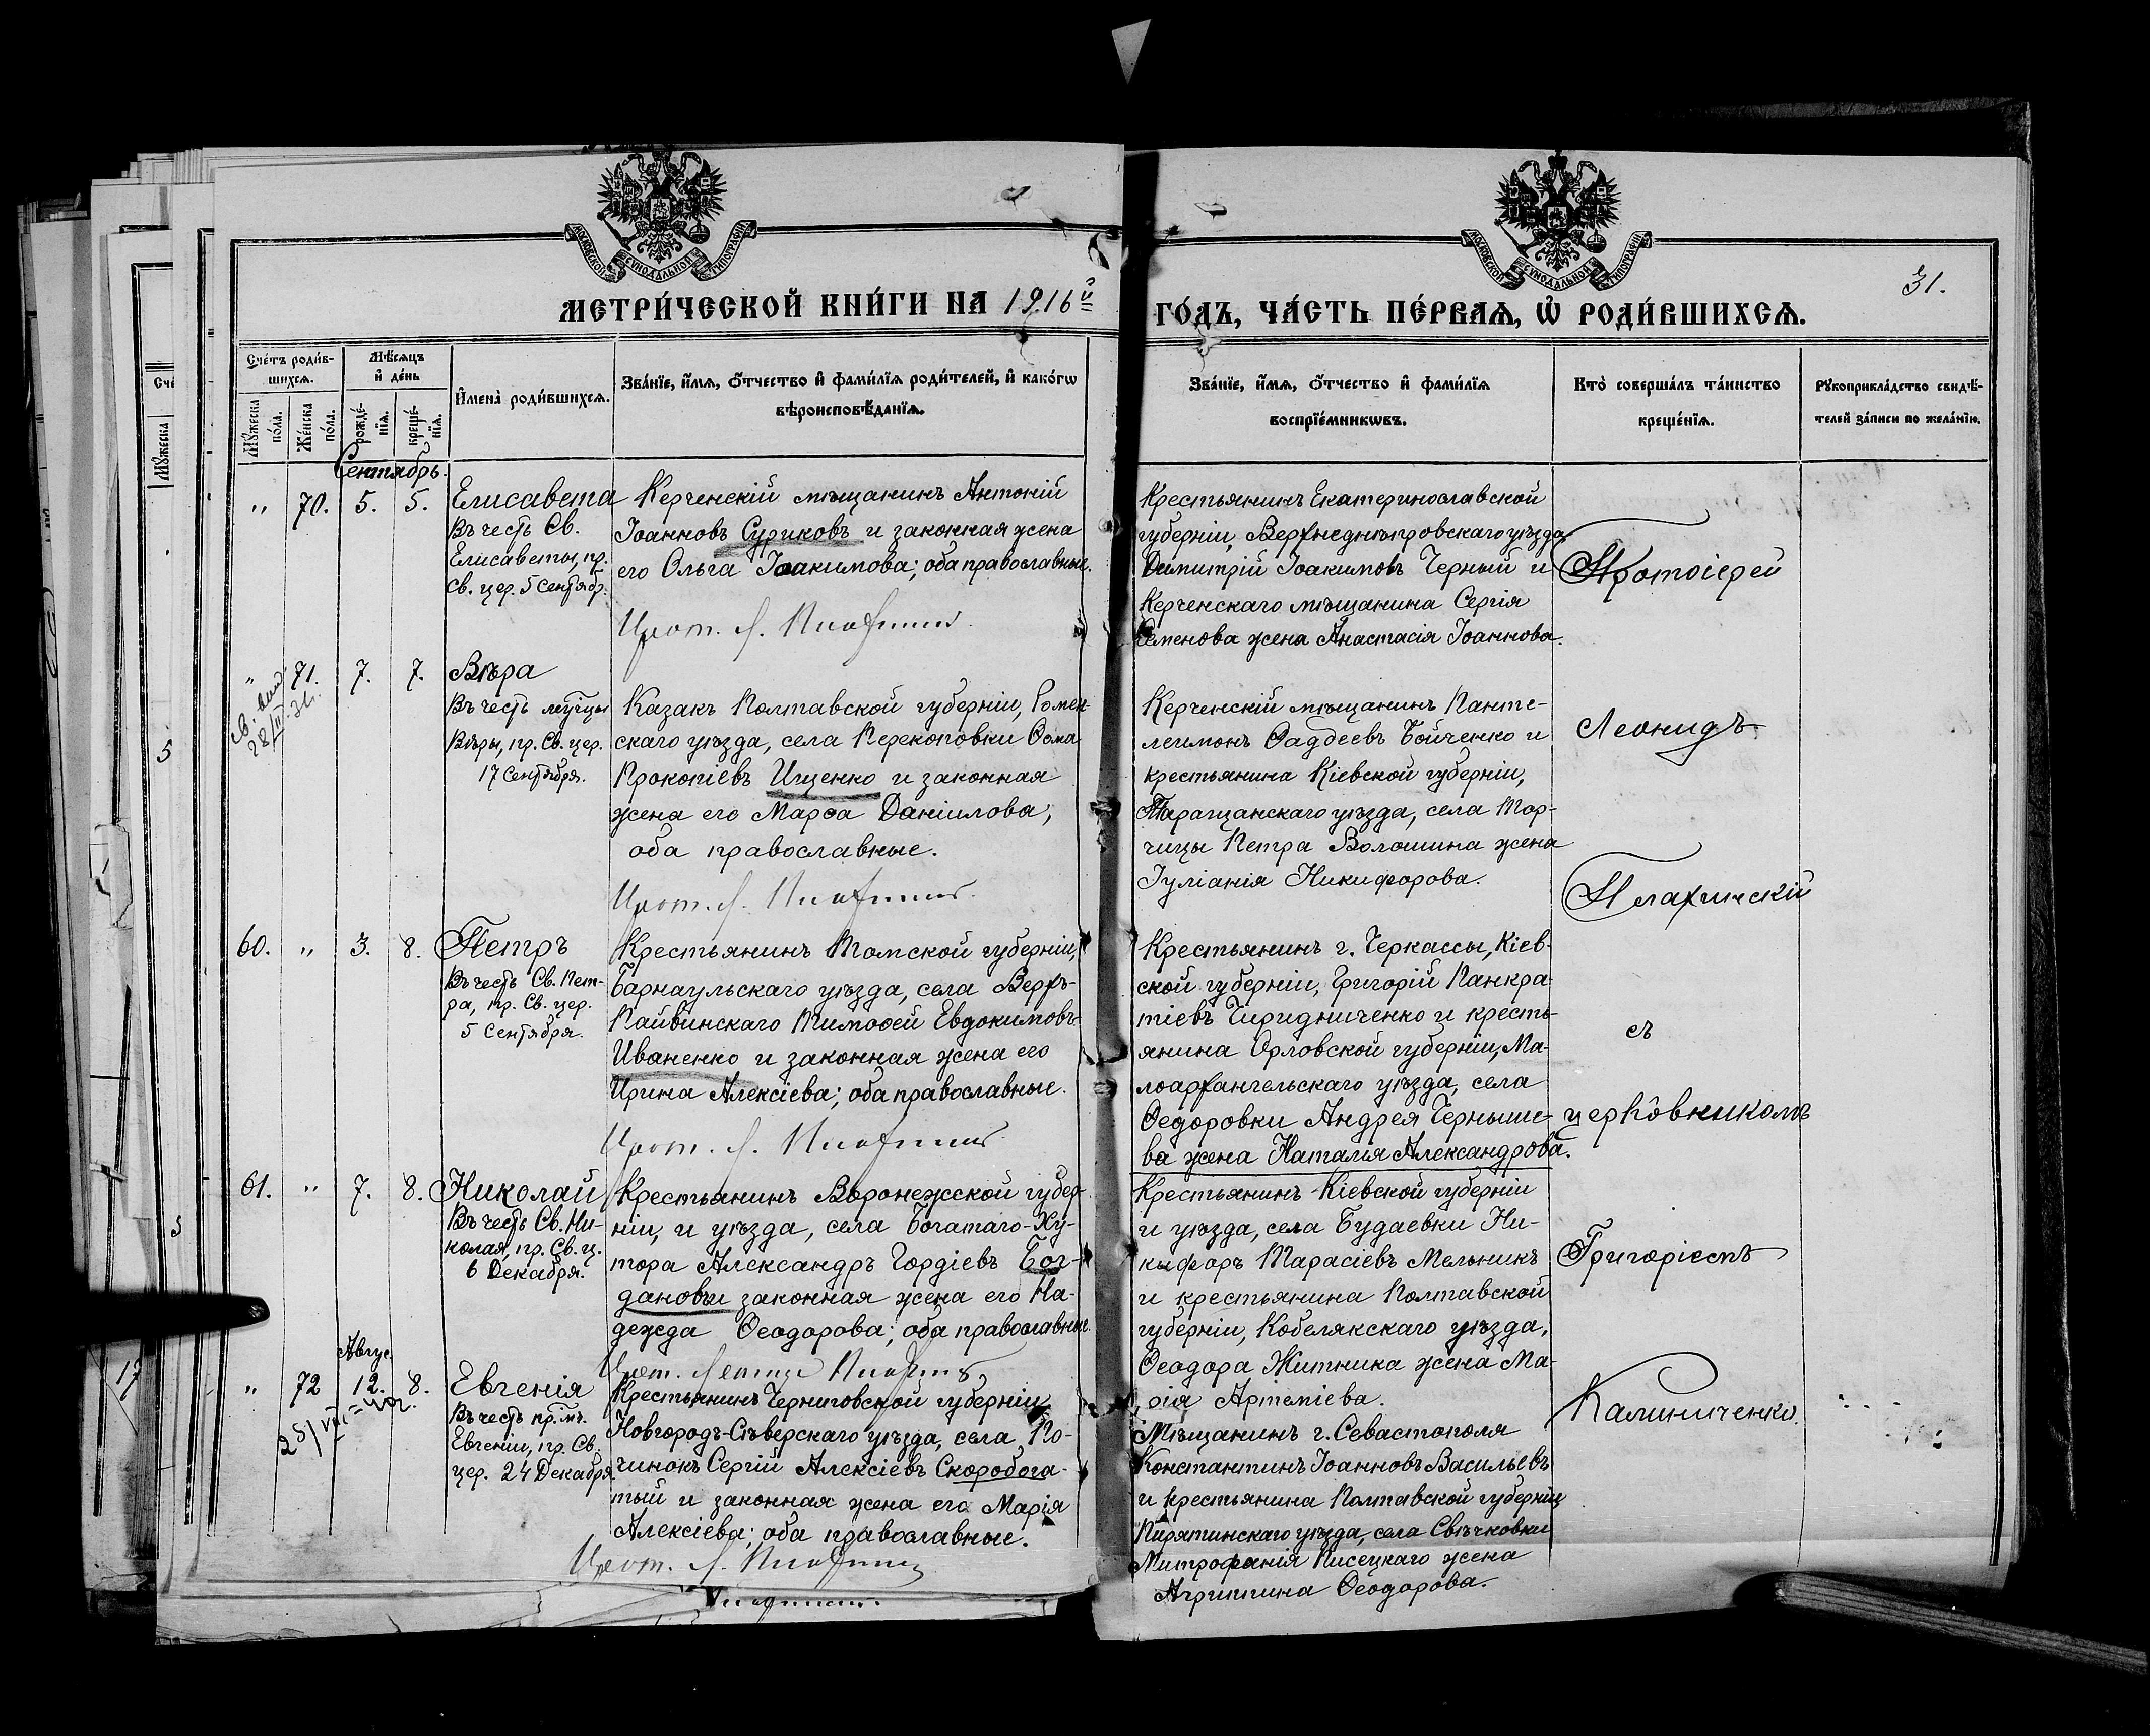 МОСКОВСКОЙ СѴНОДАЛЬНОЙ ТИПОГРАФІИ
МОСКОВСКОЙ СѴНОДАЛЬНОЙ ТИПОГРАФІИ
31.
МЕТРИ́ЧЕСКОЙ КНИ́ГИ НА 1916й ГО́ДЪ, ЧА́СТЬ ПЕ́РВАѦ, Ѿ РОДИ́ВШИХСѦ.
Сче́тъ роди́в-
шихсѧ.
Мѣ́сѧцъ
и҆ де́нь
Мꙋ́жеска
по́ла.
Же́нска
по́ла.
рожде́-
нїѧ.
креще́-
нїѧ.
И҆мена̀ роди́вшихсѧ.
Зва́нїе, и҆́мѧ, ѻ҆́тчество и҆ фами́лїѧ роди́телей, и҆ како́гѡ
вѣроисповѣ́данїѧ.
Зва́нїе, и҆́мѧ, ѻ҆́тчество и҆ фами́лїѧ
воспрїе́мникѡвъ.
Кто̀ соверша́лъ та́инство
креще́нїѧ.
Рꙋкоприкла́дство свидѣ́-
телей за́писи по жела́нїю.
Сентябрь.
" 70. 5. 5.
Елисавета
Въ честь Св.
Елисаветы, пр.
Св. цер. 5 Сентябр.
Керченскій мѣщанинъ Антоній
Іоанновъ Суриковъ и законная жена
его Ольга Іоакимова; оба православные.
Прот. Л.
Крестьянинъ Екатеринославской
губерніи, Верхнеднѣпровскаго уѣзда,
Димитрій Іоакимовъ Черный и
Керченскаго мѣщанина Сергія
Семенова жена Анастасія Іоаннова.
Протоіерей
" 71. 7. 7.
28/II-31.
Вѣра
Въ честь муцы
Вѣры, пр. Св. цер.
17 Сентября.
Казакъ Полтавской губерніи, Ромен-
скаго уѣзда, села Перекоповки Ѳома
Прокопіевъ Ищенко и законная
жена его Марѳа Даніилова;
оба православные.
Прот. Л.
Керченскій мѣщанинъ Панте-
леимонъ Ѳаддеевъ Бойченко и
крестьянина Кіевской губерніи,
Таращанскаго уѣзда, села Тор-
чицы Петра Волошина жена
Іуліанія Никифорова.
Леонидъ
60. " 3. 8.
Петръ
Въ честь Св. Пет-
ра, пр. Св. цер.
5 Сентября.
Крестьянинъ Томской губерніи,
Барнаульскаго уѣзда, села Верхъ-
Пайвинскаго Тимоѳей Евдокимовъ
Иваненко и законная жена его
Ирина Алексіева; оба православные.
Прот. Л.
Крестьянинъ г. Черкассы, Кіев-
ской губерніи, Григорій Панкра-
тіевъ Чиридниченко и кресть-
янина Орловской губерніи, Ма-
лоархангельскаго уѣзда, села
Ѳедоровки Андрея Черныше-
ва жена Наталія Александрова.
съ
церковникомъ
61. " 7. 8.
Николай
Въ честь Св. Ни-
колая, пр. Св. ц.
6 Декабря.
Крестьянинъ Воронежской губер-
ніи, и уѣзда, села Богатаго-Ху-
тора Александръ Гордіевъ Бог-
дановъ и законная жена его На-
дежда Ѳеодорова; оба православные.
Прот.
Крестьянинъ Кіевской губерніи
и уѣзда, села Будаевки Ни-
кифоръ Тарасіевъ Мельникъ
и крестьянина Полтавской
губерніи, Кобелякскаго уѣзда,
Ѳеодора Житника жена Ма-
рія Артеміева.
Григоріемъ
Авгус.
" 72 12. 8.
Евгенія
Въ честь пр. мъ.
Евгеніи, пр. Св.
цер. 24 Декабря.
Крестьянинъ Черниговской губерніи
Новгородъ-Сѣверскаго уѣзда, села По-
чинокъ Сергій Алексіевъ Скоробога-
тый и законная жена его Марія
Алексіева; оба православные.
Прот. Л.
Мѣщанинъ г. Севастополя
Константинъ Іоанновъ Васильевъ
и крестьянина Полтавской губерніи
Пирятинскаго уѣзда, села Свѣчковки
Митрофанія Писецкаго жена
Агриппина Ѳеодорова.
Калиниченко.